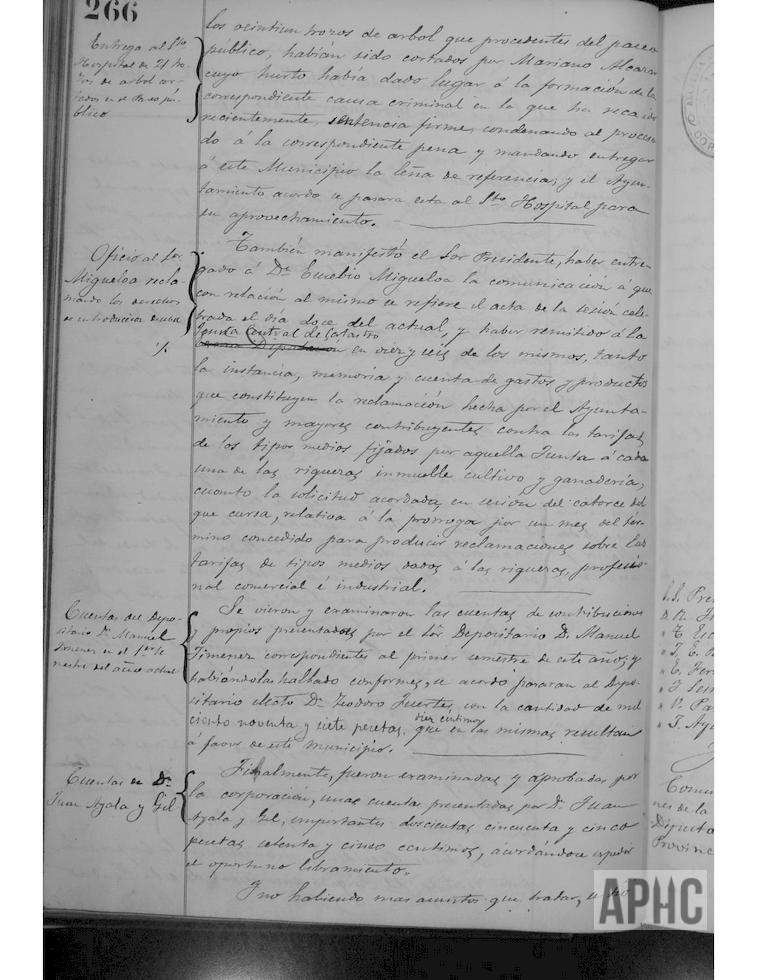 266
Entrega al Sto
Hospital de 21 tro-
zos de arbol cor-
tados en el Paseo pú-
blico
los veintiun trozos de arbol que procedentes del paseo
publico, habián sido cortados por Mariano Alcazar
cuyo hurto habia dado lugar á la formación de la
correspondiente causa criminal en la que ha recaido
recientemente, sentencia firme, condenando al procesa-
do á la correspondiente pena y mandando entregar
á este Municipio la leña de referencia; y el Ayun-
tamiento acordo se pasara esta al Sto Hospital para
su aprovechamiento.
Oficio al Sor
Migueloa recla-
mando los derechos
de introduccion
También manifestó el Sor Presidente, haber entre-
gado á Dn Eusebio Migueloa la comunicación a que
con relación al mismo se refiere el acta de la sesión cele-
brada el dia doce del actual, y haber remitido á la
Junta Central de Catastro
Diputación en diez y seis de los mismos, tanto
la instancia, memoria y cuenta de gastos y productos
que constituyen la reclamación hecha por el Ayunta-
miento y mayores contribuyentes contra las tarifas
de los tipos medios fijados por aquella Junta á cada
una de las riquezas inmueble cultivo y ganaderia,
cuanto la solicitud acordada, en sesión del catorce del
que cursa, relativa á la prorroga por un mes del tér-
mino concedido para producir reclamaciones sobre las
tarifas de tipos medios dados á las riquezas, profesio-
nal comercial é industrial.
Cuentas del Depo-
sitario Dn Manuel
Jimenez en el 1er Se-
mestre del año actual
Se vieron y examinaron las cuentas de contribuciones
y propios presentadas por el Sor Depositario D. Manuel
Jimenez correspondientes al primer semestre de este año, y
habiéndolas hallado conformes, se acordo pasaran al Depo-
sitario electo Dn Teodoro Fuertes, con la cantidad de mil
ciento noventa y siete pesetas, diez céntimos que en las mismas resultan
á favor de este municipio.
Cuentas de Dn
Juan Ayala y Gil
Finalmente, fueron examinadas y aprobadas por
la corporación, unas cuentas presentadas por Dn Juan
Ayala y Gil, importantes doscientas cincuenta y cinco
pesetas setenta y cinco centimos, acordándose expedir
el oportuno libramiento.
Y no habiendo mas asuntos que tratar, se
S.S. Pre
Comu
nes de la
Diputa
Provinc
APHC